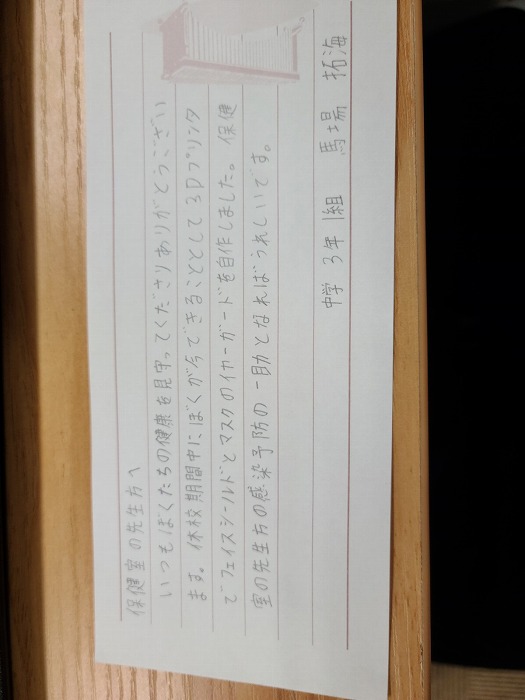 保健室の先生方へ
いつもぼくたちの健康を見守ってくださりありがとうござい
ます。休校期間中にぼくが今できることとして3Dプリンタ
でフェイスシールドとマスクのイヤーガードを自作しました。保健
室の先生方の感染予防の一助となればうれしいです。
中学3年1組 馬場 拓海